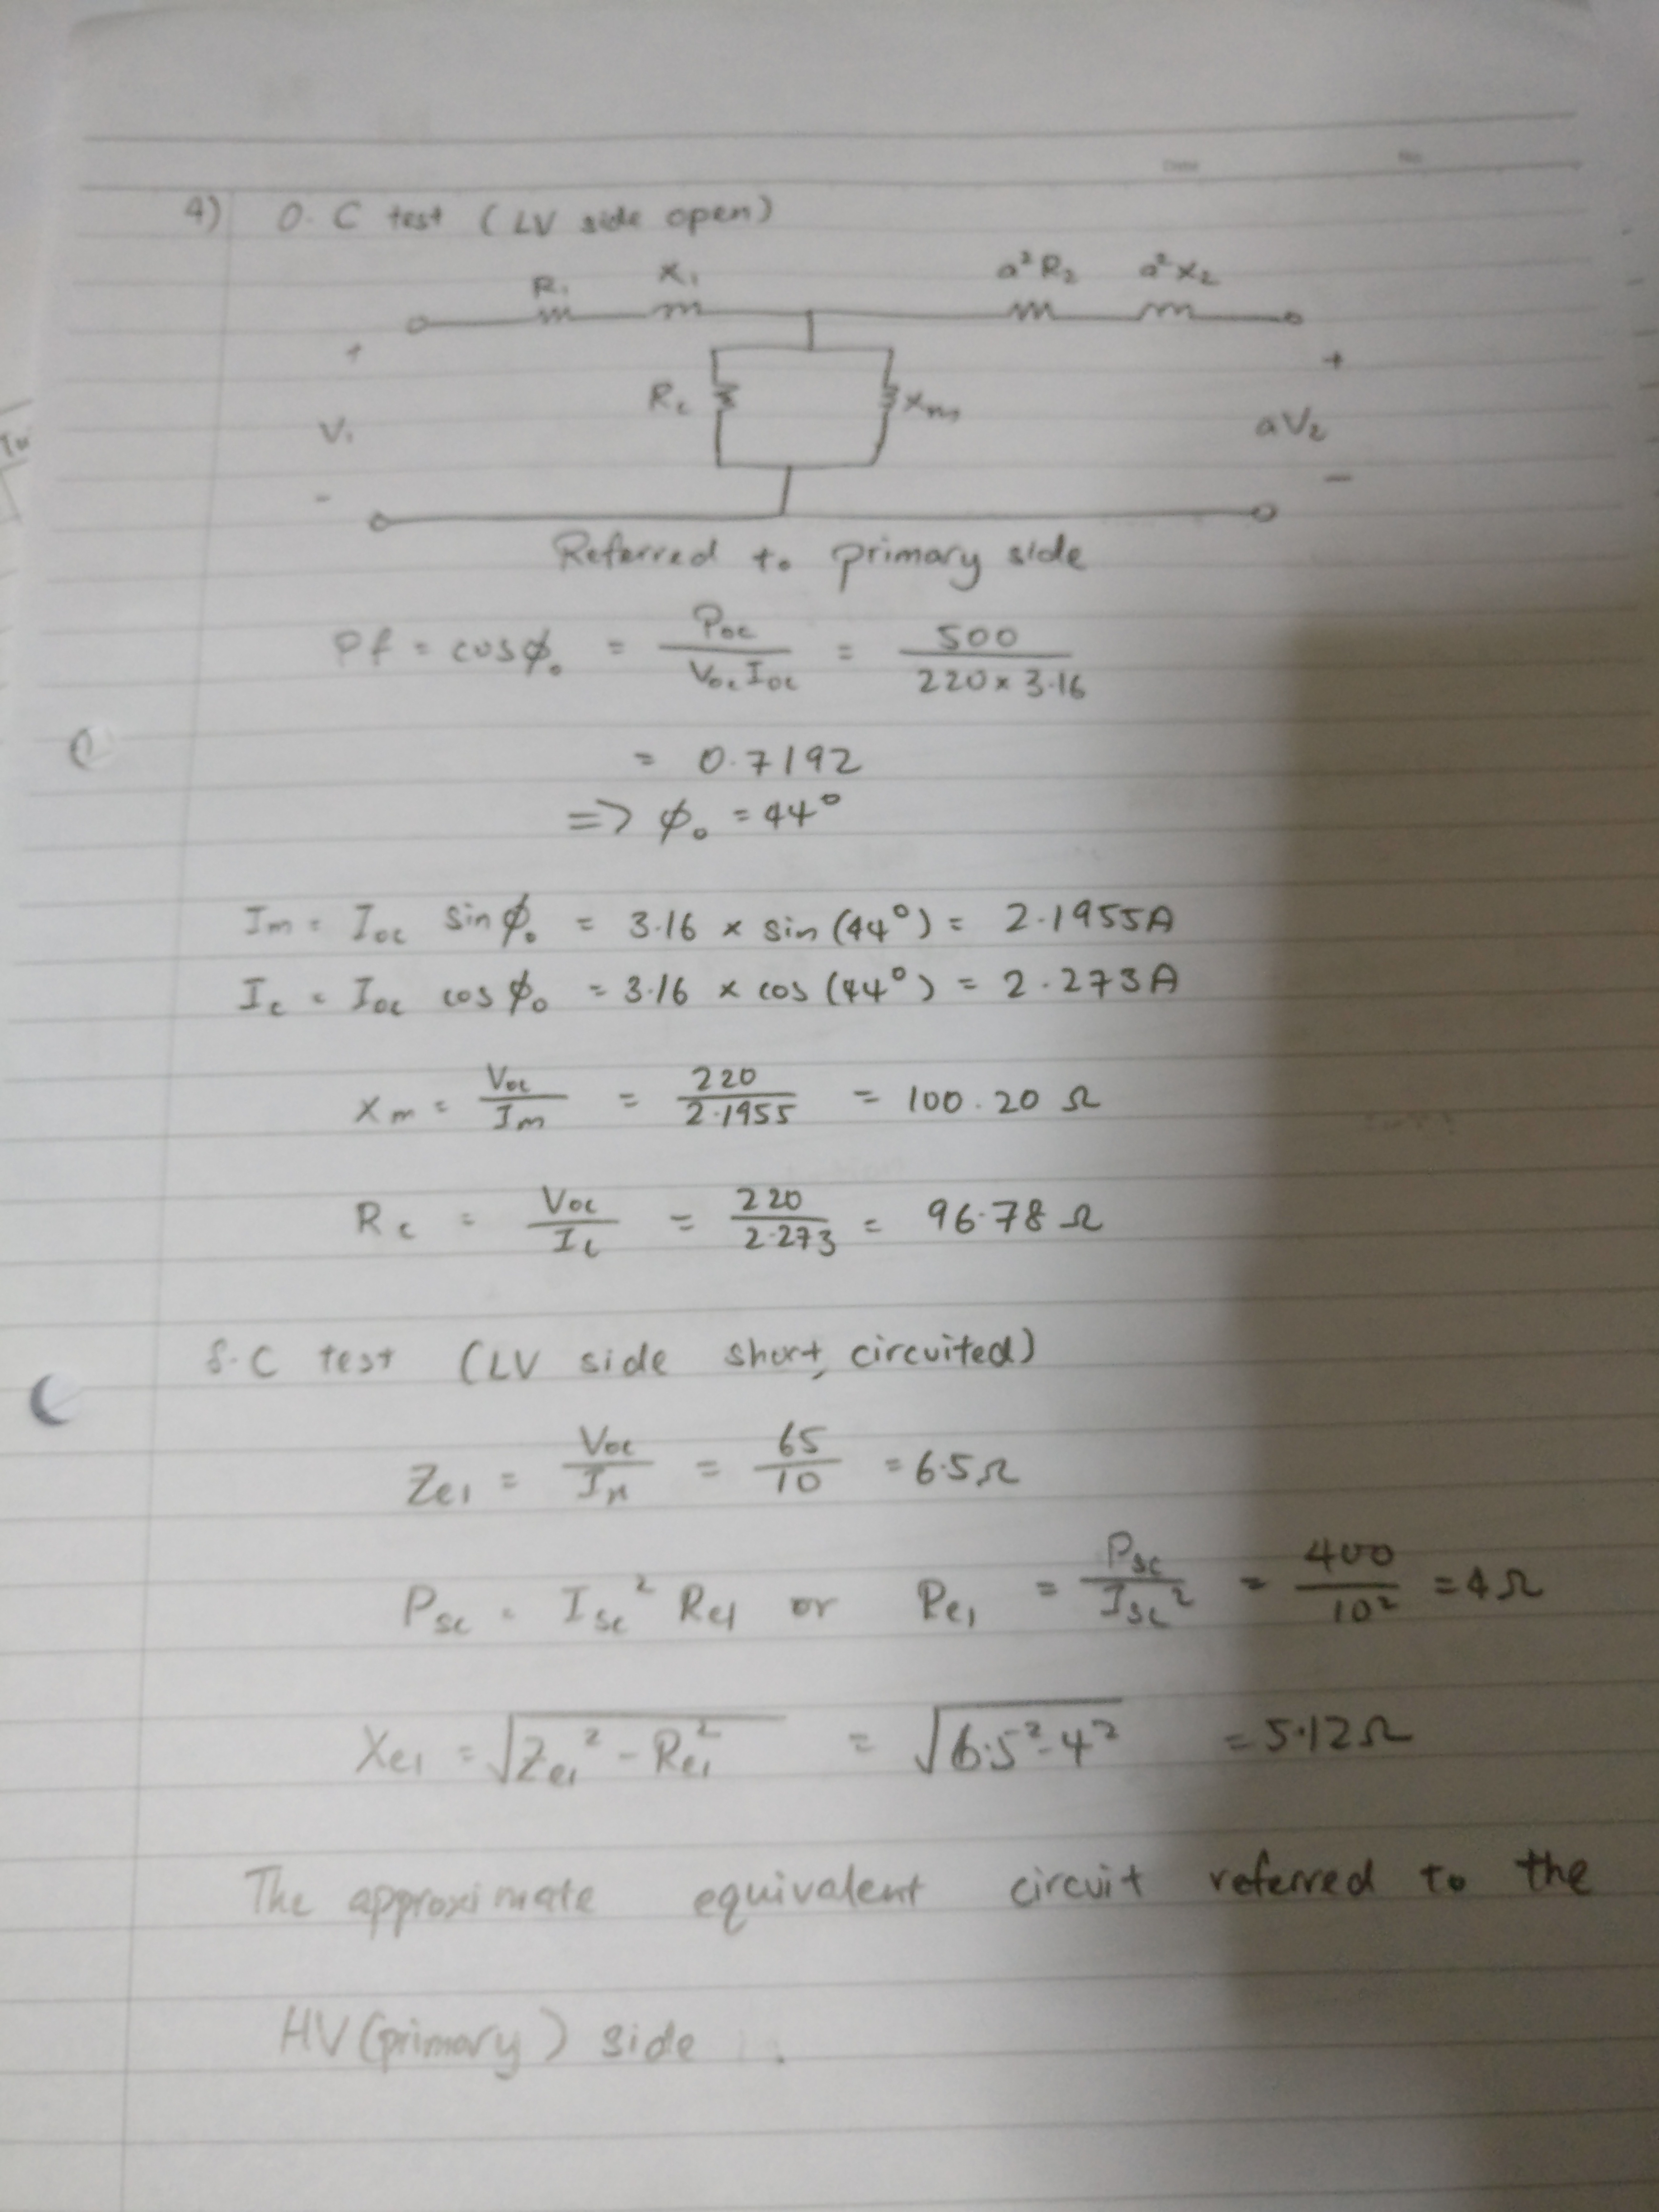 Date No
4) O.C test (LV side open)
R₁ X₁ a²R₂ a²X₂
+ +
V₁ Rc Xm aV₂
- -
Referred to primary side
Pf = cosϕ₀ = Poc / Voc Ioc = 500 / 220 x 3.16
= 0.7192
=> ϕ₀ = 44°
Im = Ioc sinϕ₀ = 3.16 x sin(44°) = 2.1955A
Ic = Ioc cosϕ₀ = 3.16 x cos(44°) = 2.273A
Xm = Voc / Im = 220 / 2.1955 = 100.20 Ω
Rc = Voc / Ic = 220 / 2.273 = 96.78 Ω
S.C test (LV side short, circuited)
Ze1 = Voc / = 65 / 10 = 6.5Ω
Psc = Isc² Re1 or Re1 = Psc / Isc² = 400 / 10² = 4Ω
Xe1 = √(Ze1² - Re1²) = √(6.5² - 4²) = 5.12Ω
The approximate equivalent circuit referred to the
HV(primary) side :